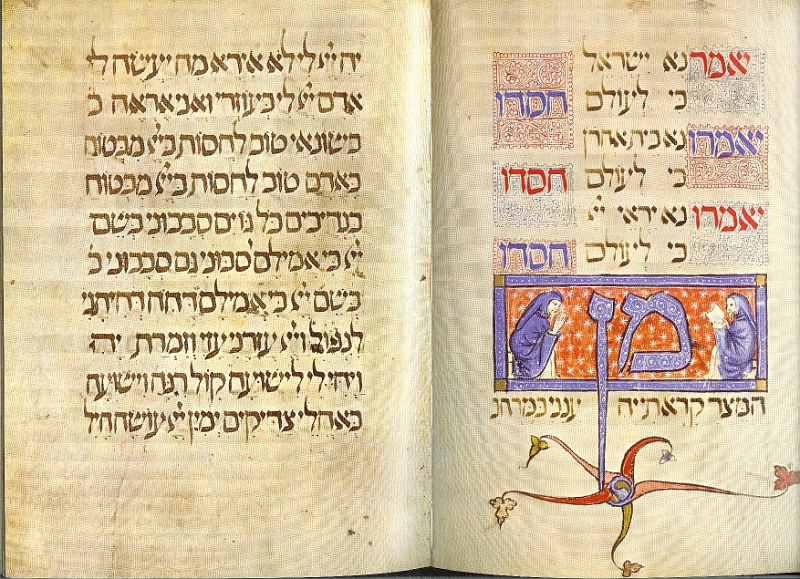 יאמר נא ישראל
כי לעולם חסדו
יאמרו נא בית אהרן
כי לעולם חסדו
יאמרו נא יראי יי
כי לעולם חסדו
מן
המצר קראתי יה ענני במרחב
יה יי לי לא אירא מה יעשה לי
אדם יי לי בעוזרי ואני אראה ב
בשונאי טוב לחסות ביי מבטוח
באדם טוב לחסות ביי מבטוח
בנדיבים כל גוים סבבוני בשם
יי כי אמילם סבוני גם סבבוני ב
בשם יי כי אמילם דחה דחיתני
לנפול ויי עזרני עזי וזמרת יה
ויהי לי לישועה קול רנה וישועה
באהלי צדיקים ימין יי עושה חיל